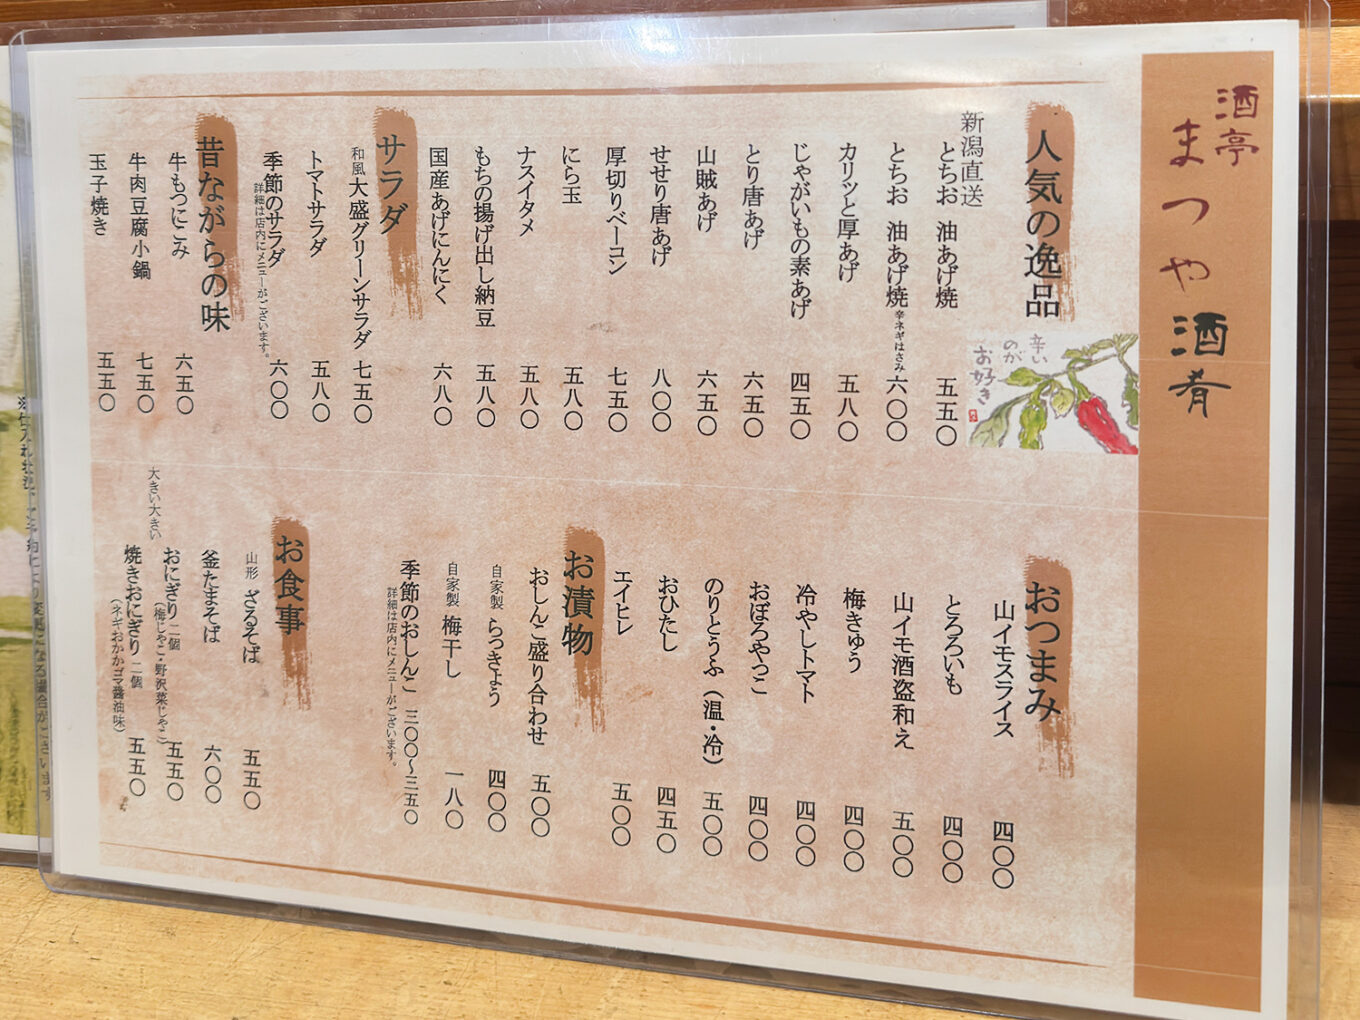 酒亭
まつや酒肴
人気の逸品
辛い
のが
お好き
新潟直送
とちお 油あげ焼 五五〇
とちお 油あげ焼 辛ネギはさみ 六〇〇
カリッと厚あげ 五八〇
じゃがいもの素あげ 四五〇
とり唐あげ 六五〇
山賊あげ 六五〇
せせり唐あげ 八〇〇
厚切りベーコン 七五〇
にら玉 五八〇
ナスイタメ 五八〇
もちの揚げ出し納豆 五八〇
国産あげにんにく 六八〇
サラダ
和風 大盛グリーンサラダ 七五〇
トマトサラダ 五八〇
季節のサラダ 六〇〇
詳細は店内にメニューがございます。
昔ながらの味
牛もつにこみ 六五〇
牛肉豆腐小鍋 七五〇
玉子焼き 五五〇
おつまみ
山イモスライス 四〇〇
とろろいも 四〇〇
山イモ酒盗和え 五〇〇
梅きゅう 四〇〇
冷やしトマト 四〇〇
おぼろやっこ 四〇〇
のりとうふ(温・冷) 五〇〇
おひたし 四五〇
エイヒレ 五〇〇
お漬物
おしんこ盛り合わせ 五〇〇
自家製 らっきょう 四〇〇
自家製 梅干し 一八〇
季節のおしんこ 三〇〇〜三五〇
詳細は店内にメニューがございます。
お食事
山形 ざるそば 五五〇
釜たまそば 六〇〇
大きい大きい
おにぎり 二個 五五〇
(梅じゃこ・野沢菜じゃこ)
焼きおにぎり 二個 五五〇
(ネギおかかゴマ醤油味)